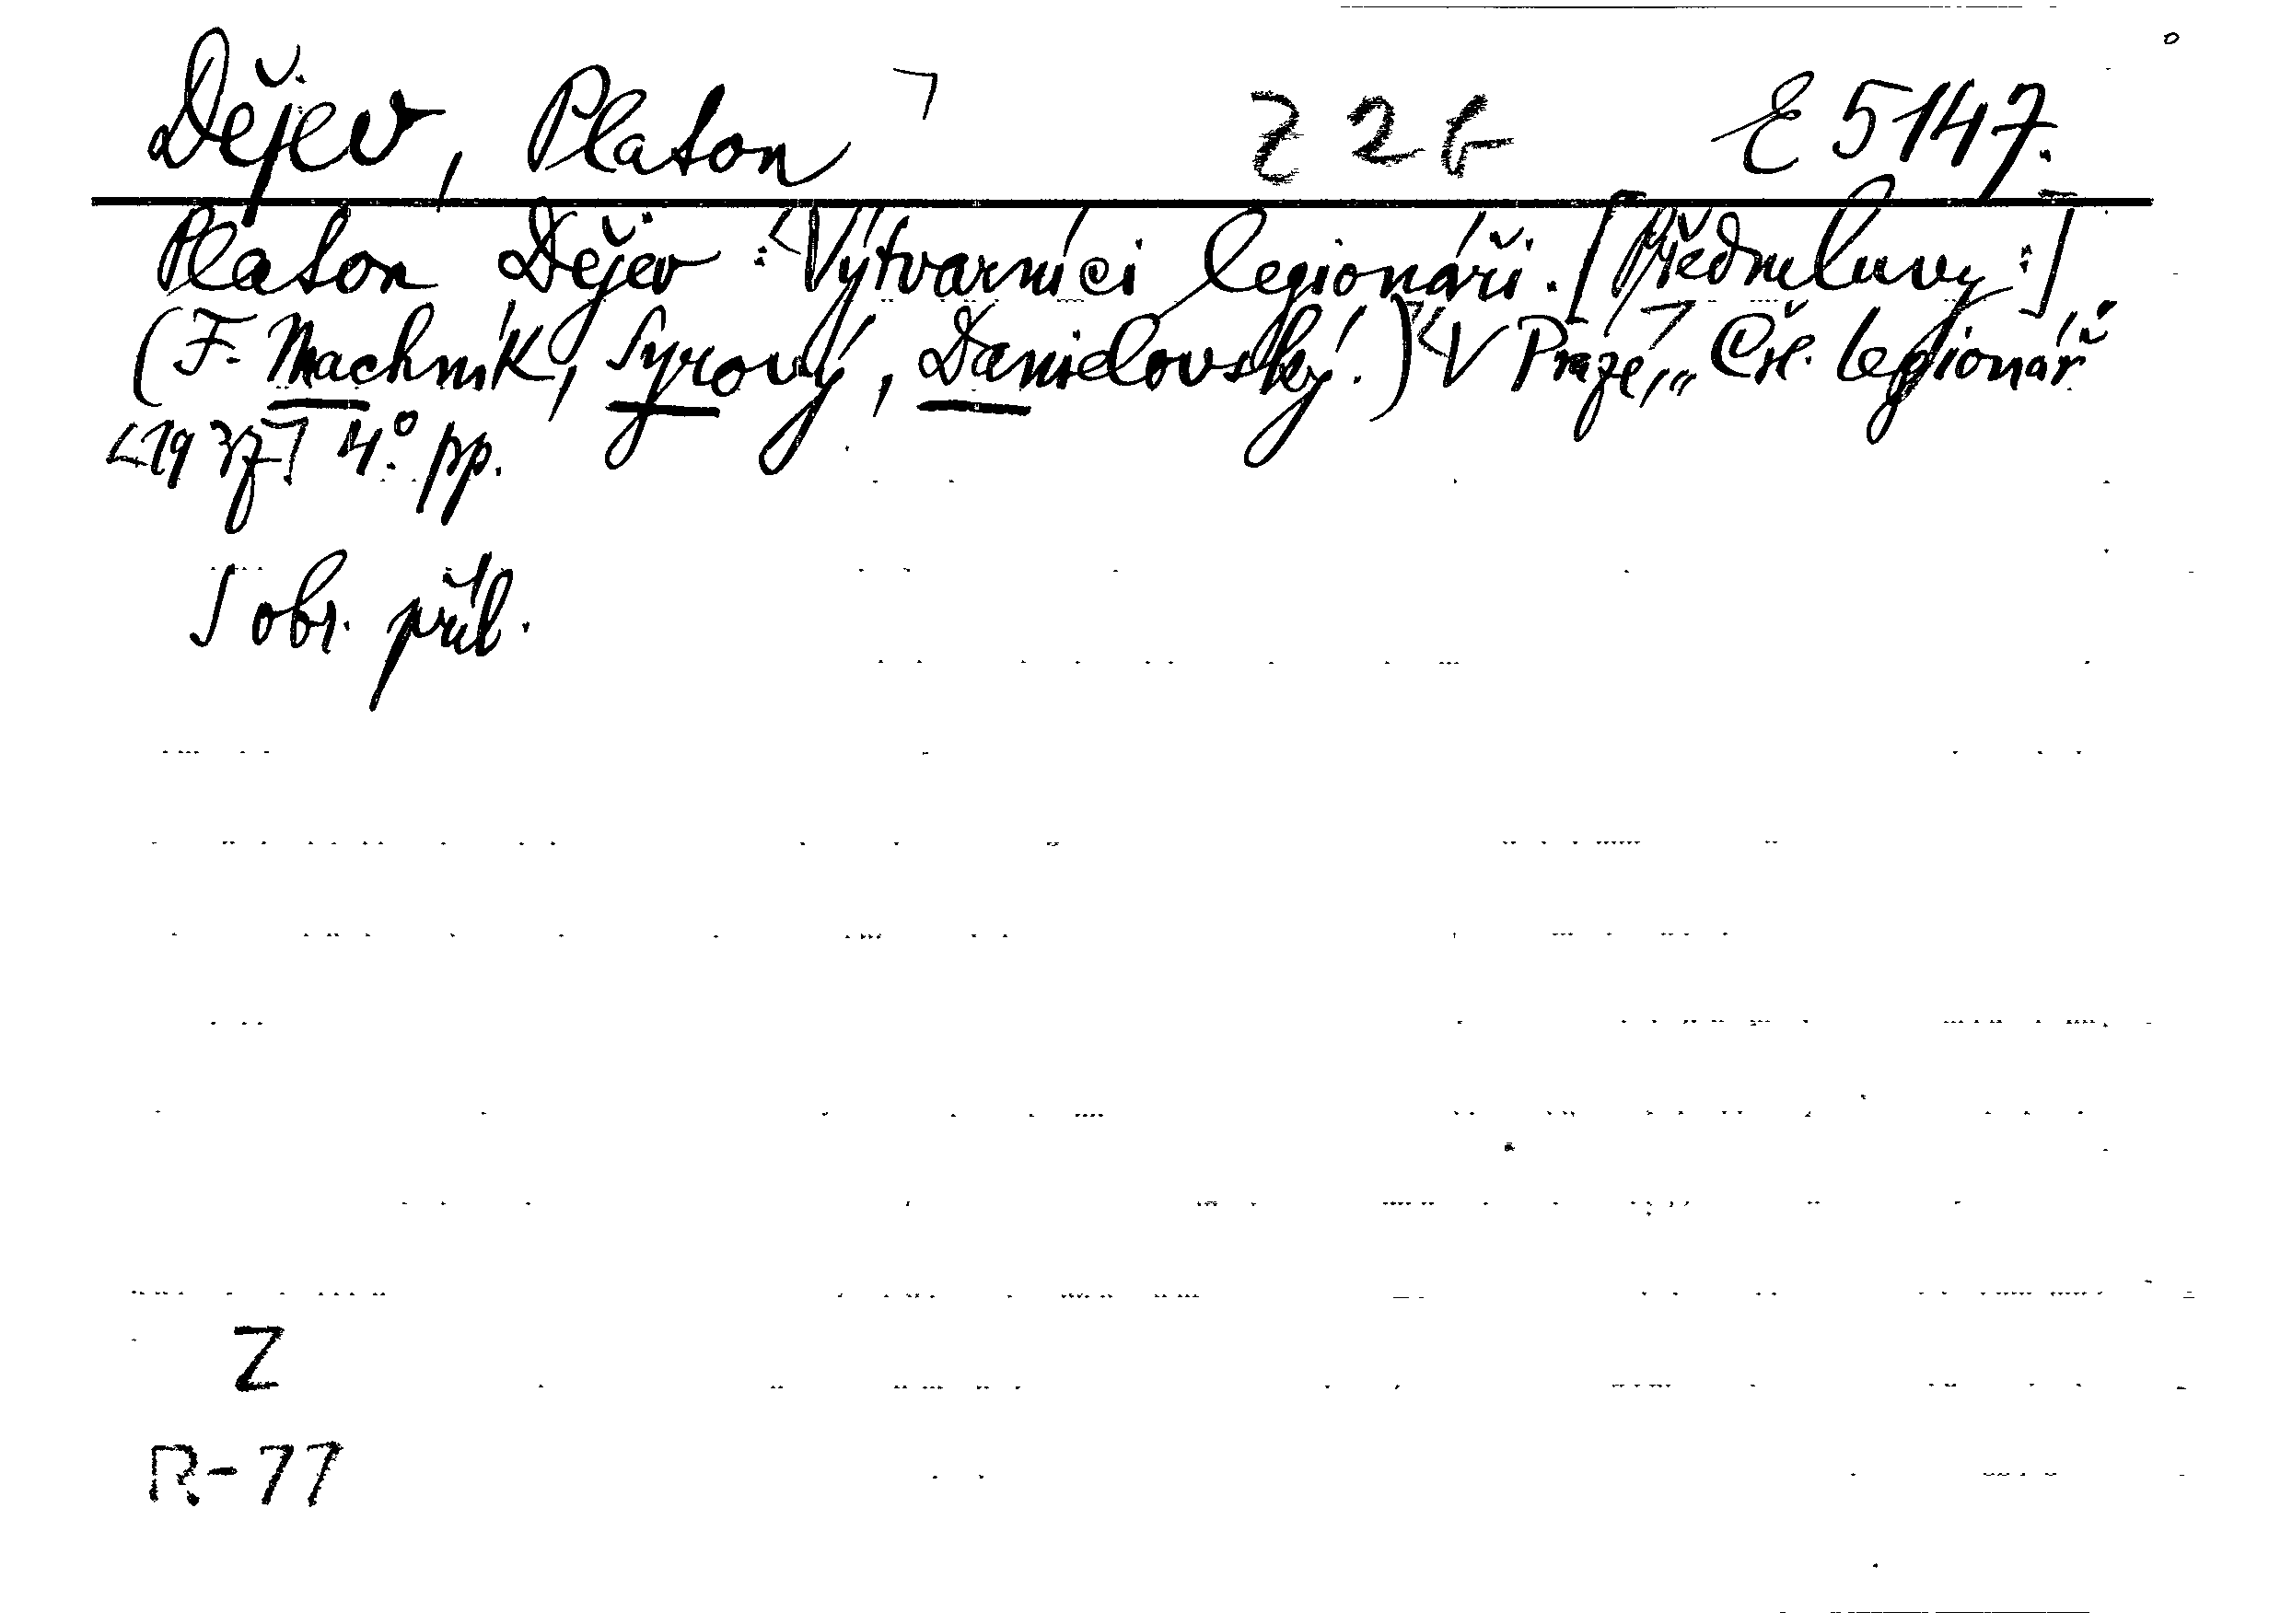 Dějev, Platon ㄱ Z 2 b E 5147.
Platon Dějev: <Výtvarníci legionáři. [Předmluvy:]
(F. Machník, Syrový, Danielovský.) <V Praze,ㄱ „Čsl. legionář“
<1937ㄱ 4°. pp.
S obr. příl.
Z
R-77